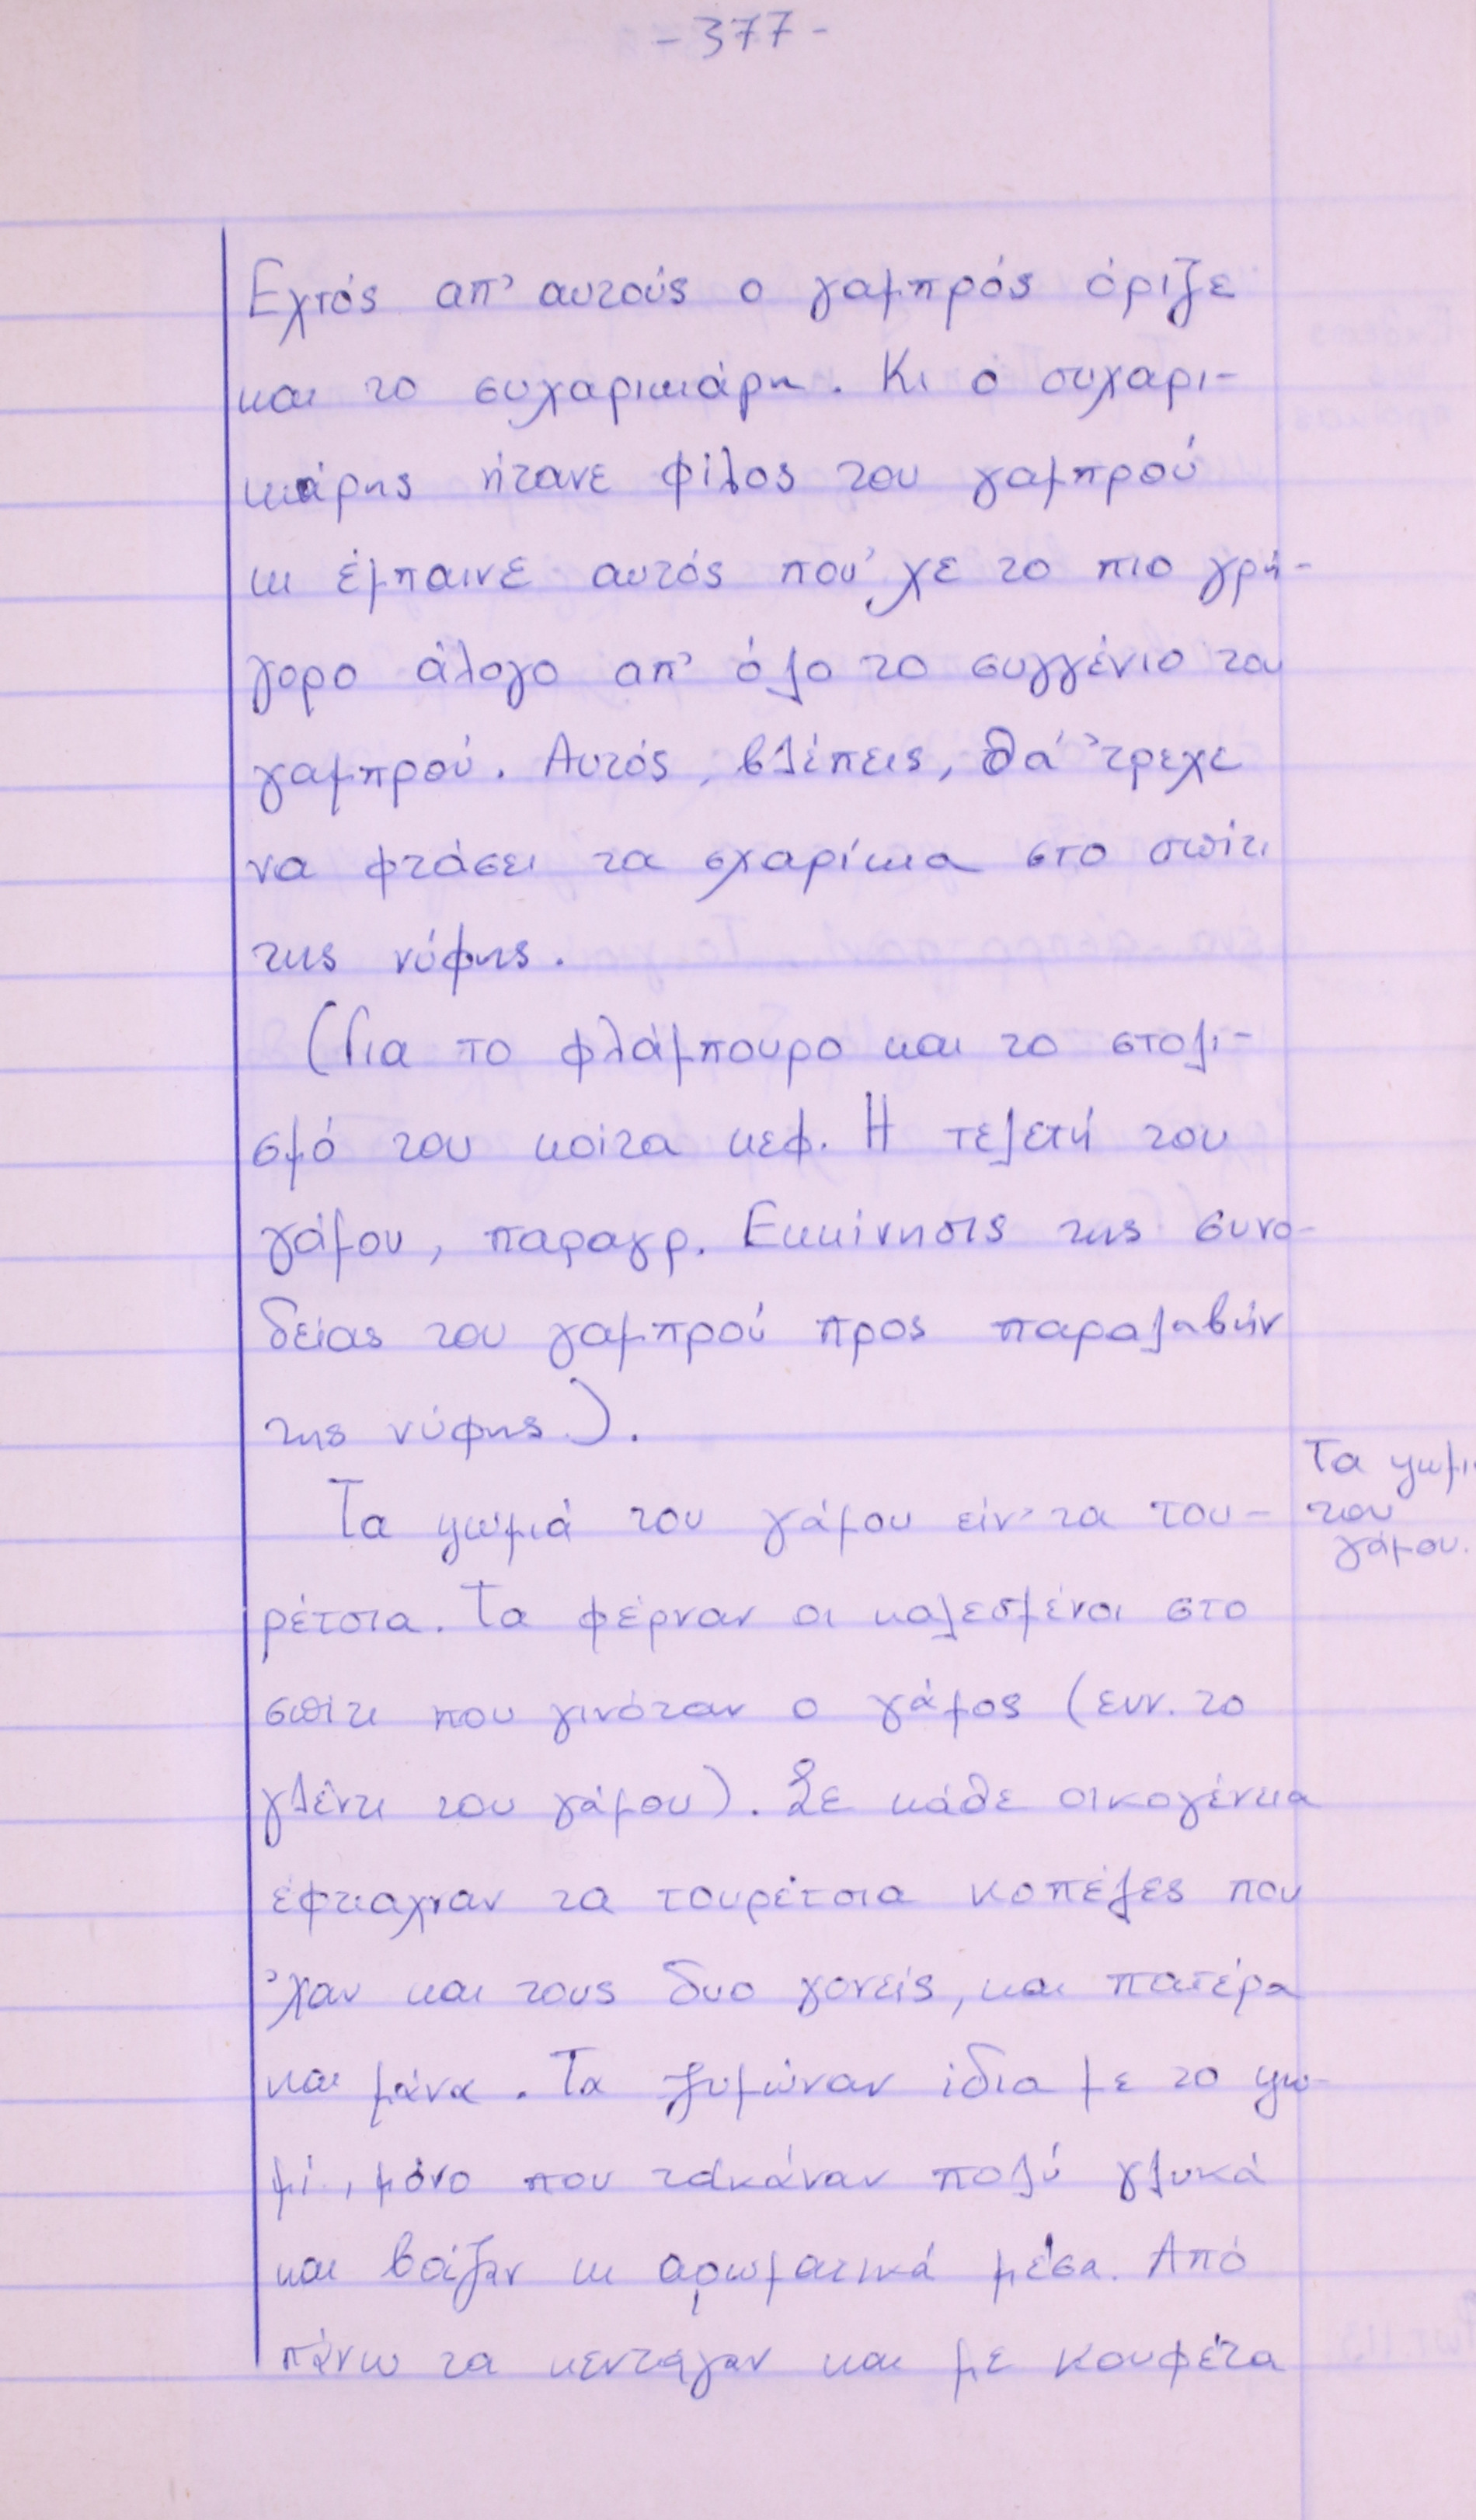 -377-
Εχτός απ' αυτούς ο γαμπρός όριζε
και το συχαρικιάρη. Κι ο συχαρι-
κιάρης ήτανε φίλος του γαμπρού
κι έμπαινε αυτός που' χε το πιο γρή-
γορο άλογο απ' όλο το συγγένιο του
γαμπρού. Αυτός, βλέπεις, θά 'τρεχε
να φτάσει τα σχαρίκια στο σπίτι
της νύφης.
(Για το φλάμπουρο και το στολι-
σμό του κοίτα κεφ. Η τελετή του
γάμου, παραγρ. Εκκίνησις της συνο-
δείας του γαμπρού προς παραλαβήν
της νύφης).
Τα ψωμιά του γάμου είν' τα του-
ρέτσια. Τα φέρναν οι καλεσμένοι στο
σπίτι που γινόταν ο γάμος (ενν. το
γλέντι του γάμου). Σε κάθε οικογένεια
έφτιαχναν τα τουρέτσια κοπέλες που
'χαν και τους δυο γονείς, και πατέρα
και μάνα. Τα ζυμώναν ίδια με το ψω-
μί, μόνο που τα κάναν πολύ γλυκά
και βάζαν κι αρωματικά μέσα. Από
πάνω τα κένταγαν και με κουφέτα
Τα ψωμι
του
γάμου.